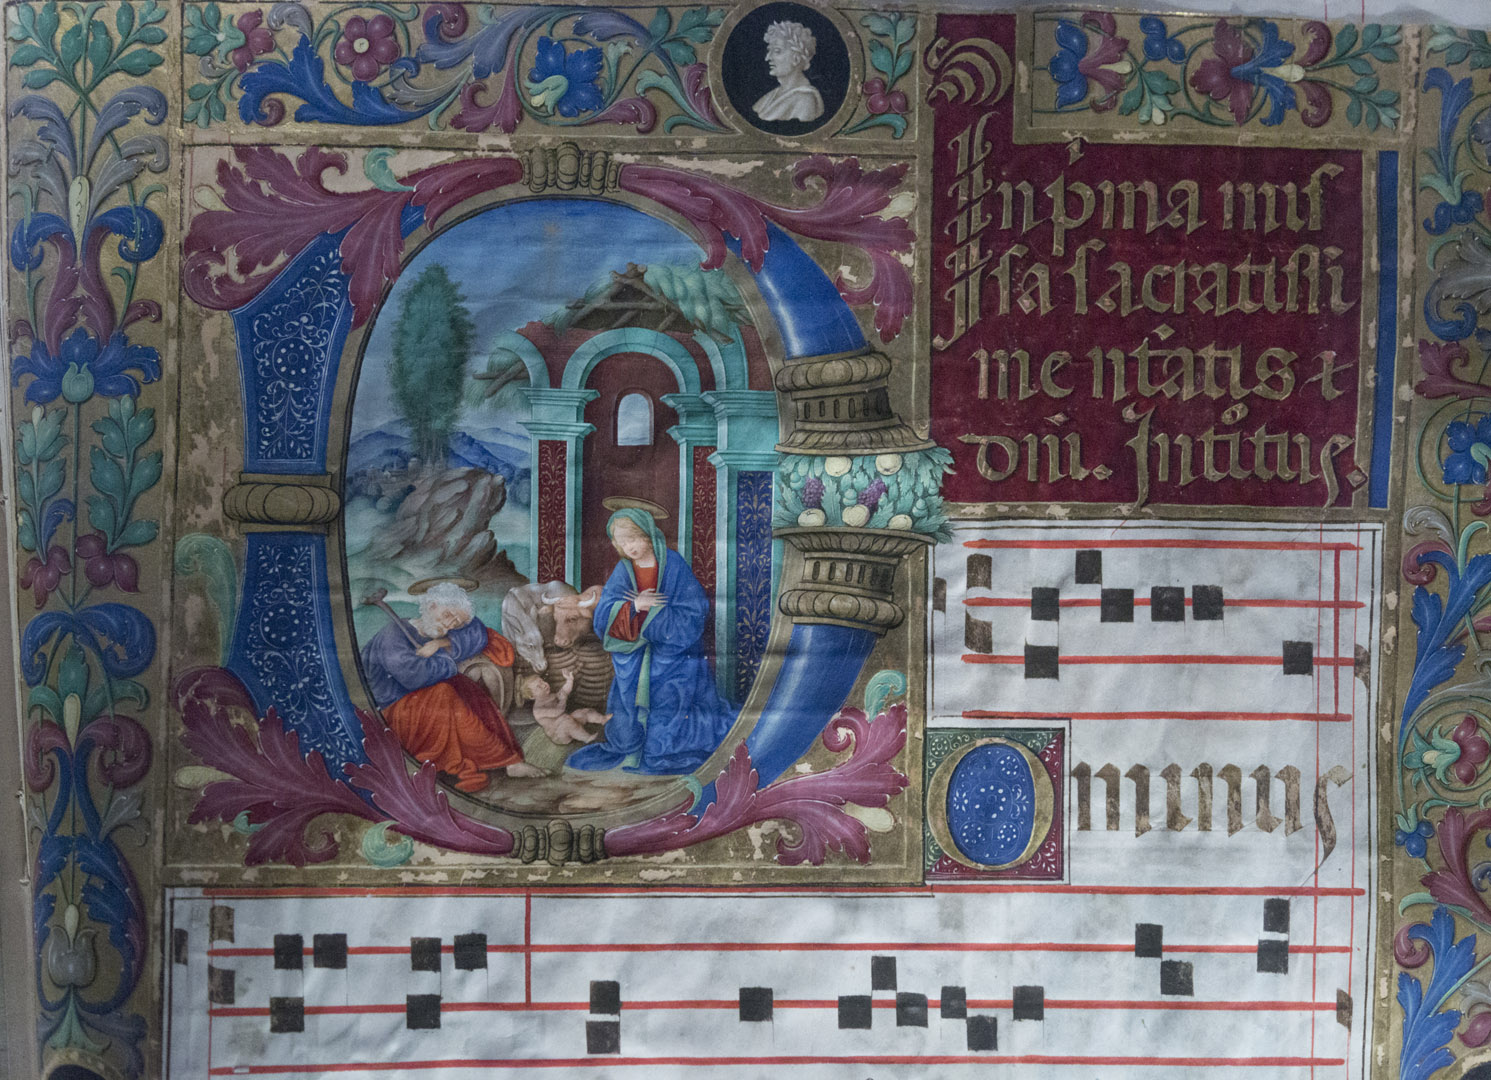 In p̄ma mis
sa sacratissi
me nt̄atis ⁊
dn̄i. Intᵒitus.
DOminus